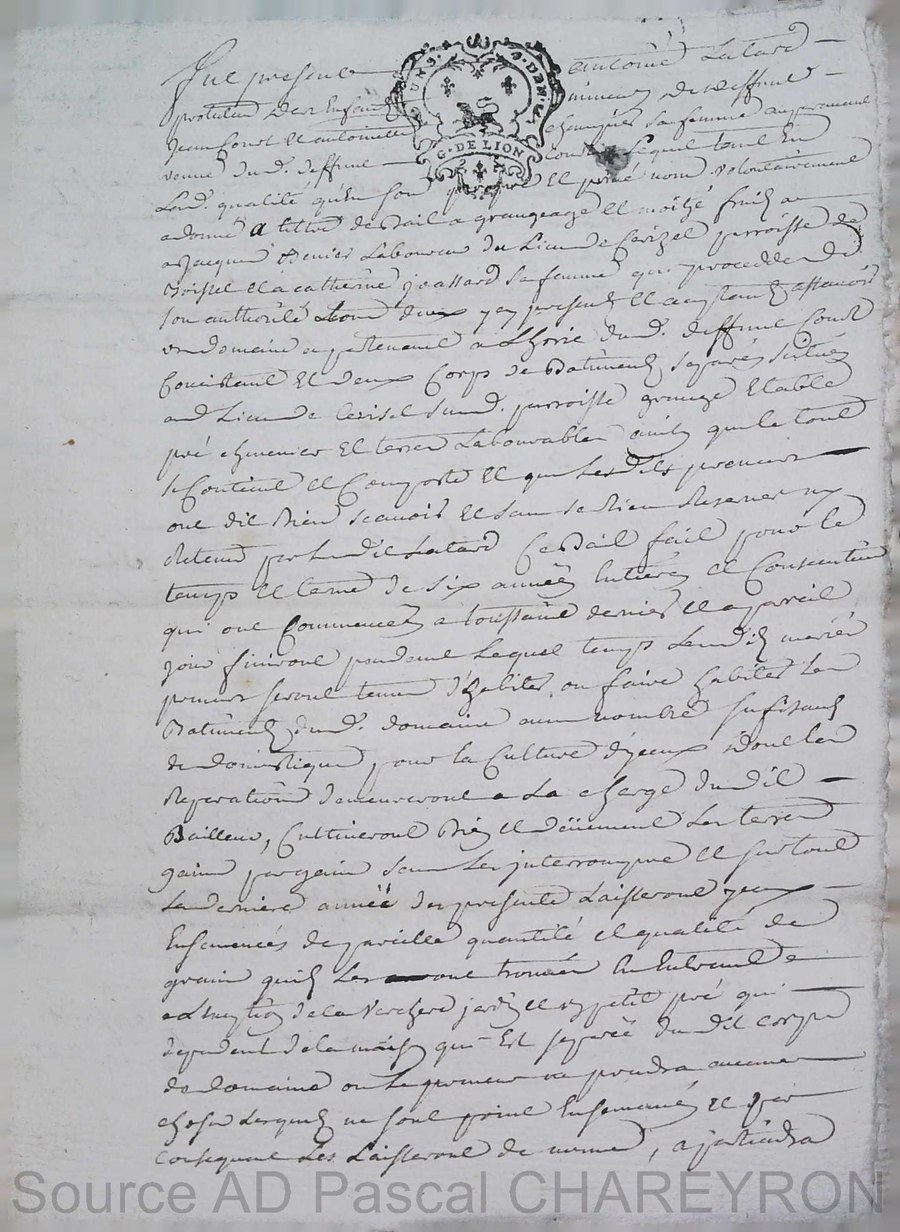 Fut present antoine Latard
protuteur des Enfans mineurs de deffunt
Jean Coust et antoinette sa femme auparavant
veuve du d. deffunt Coust Lequel tant En
Lad. qualité qu'en son propre et privé nom volontairement
a donné a tittre de Bail a grangeage et moitié fruits a
Jacques Denier Laboureur du Lieu de Cerizel parroisse de
et a catherine joassard sa femme qui procedde de
son authorité tous deux yci presents et acceptants assavoir
un domaine apartenant a L'horie du d. deffunt Coust
Consistant Et deux Corps de Batiments separés scitués
aud Lieu de Cerisel sus d. parroisse grange Etable
pré cheneviers Et terres Labourables ainsi que le tout
se Contient et Comporte Et que Lesdits preneurs
ont dit bien scavoir et sans se Rien Reserver ny
detenu par Ledit Latard Ce Bail fait pour le
temps et terme de six années Entières et Consecutives
qui ont Commencés a toussaint dernier et a pareil
jour finiront pendant Lequel temps Lesdits mariés
preneurs seront tenus d'habiter ou faire habiter Les
Batiments du d. domaine aun nombre sufisant
de domestiques pour la Culture d'yceux dont les
Reparations demeureront a La charge dudit
Bailleur, Cultiveront Bien et duëment Les terres
gain par gain sans Les jnterrompre et surtout
La derniere année des presentes Laisseront yceux
Ensemencés de pareille quantité et qualité de
grain quils Les ont trouvés En Entrant a
L'exeption de la verchere jardin et un petit pré qui
dependent de la maison qui Est separée dudit corps
de domaine ou Le preneur na prendra aucunes
choses Lesquels ne sont point Ensemancés et par
consequent Les Laisseront de meme, a jatiendra
G. DE LION
Source AD Pascal CHAREYRON